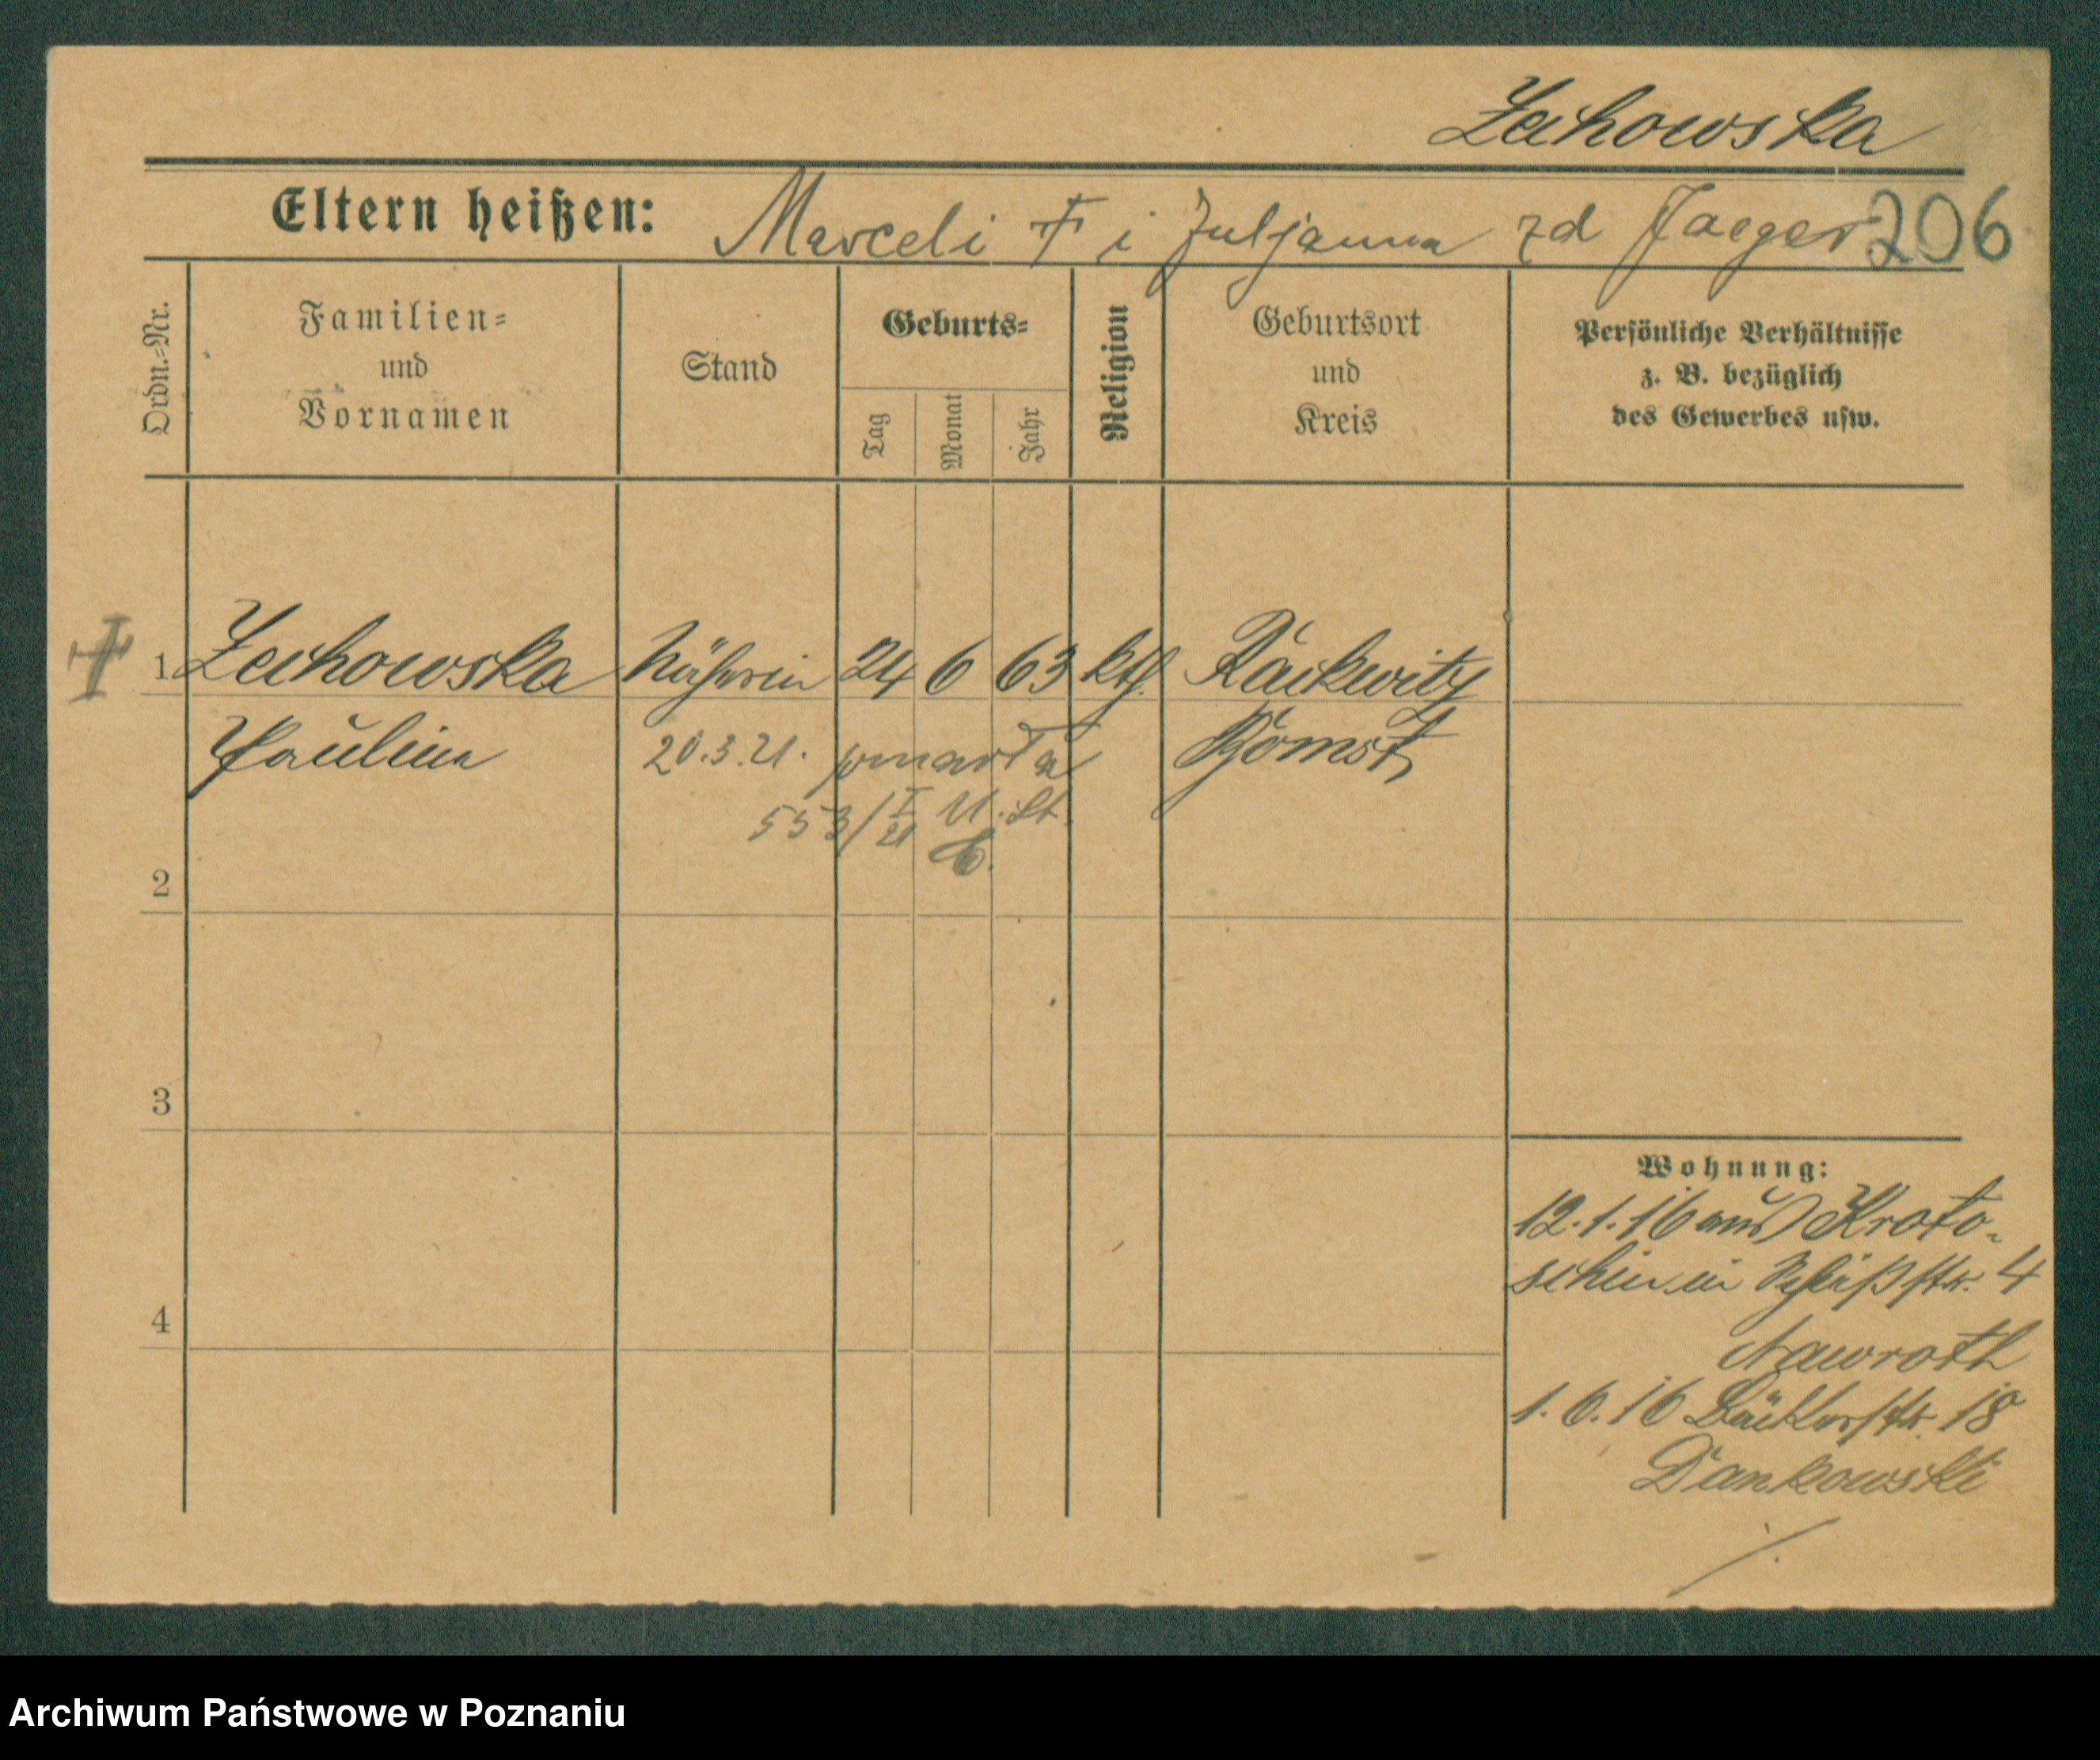 Zechowska
Eltern heißen: Marceli † i Juljanna zd Jaeger 206
Ordn.-Nr.
Familien-
und
Vornamen
Stand
Geburts-
Tag
Monat
Jahr
Religion
Geburtsort
und
Kreis
Persönliche Verhältnisse
z. B. bezüglich
des Gewerbes usw.
1 Zechowska Näherin 24 6 63 kth. Rackwitz
Paulina 20.3.21. zmarła Bomst
553/I 21 U. St.
2
3
4
Wohnung:
12.1.16 aus Kroto-
schin in 4
Nawroth
1.6.16 18
Dankowski
Archiwum Państwowe w Poznaniu